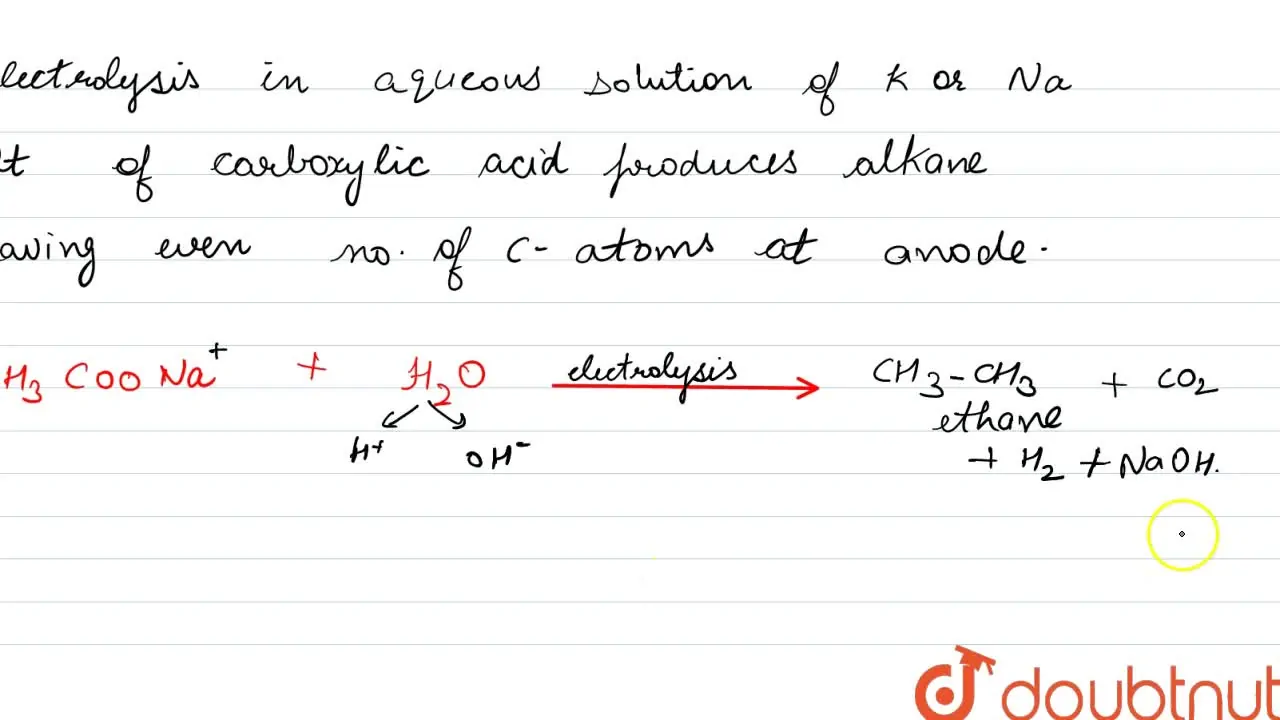 lectrolysis in aqueous solution of K or Na
lt of carboxylic acid produces alkane
aving even no. of C- atoms at anode.
H3 COO Na+ + H2O electrolysis CH3-CH3 + CO2
ethane
H+ OH- + H2 + NaOH.
doubtnut